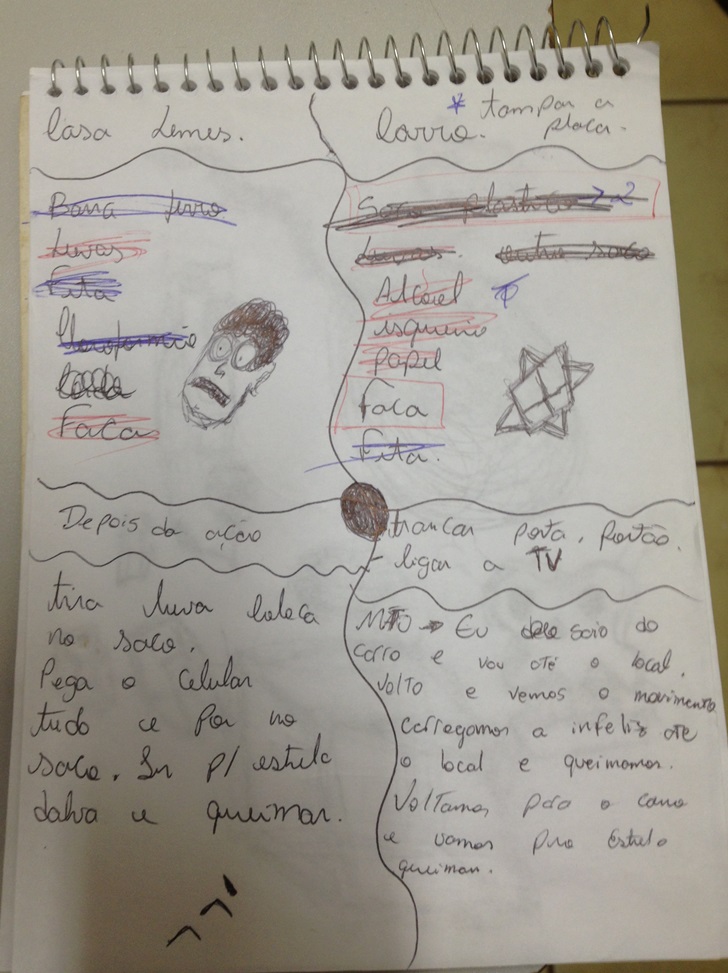 Casa Lemes.
Carro.
* tampar a
placa.
Barra ferro
Luvas
Fita
Faca
Saco plástico > 2
Luvas. outro saco
Alcool
isqueiro
papel
Faca
Fita.
Depois da ação
trancar porta, Portão.
ligar a TV
tira luva coloca
no saco.
Pega o celular
tudo e Por no
saco. Ir p/ estrela
dalva e queimar.
MATO → Eu saio do
carro e vou até o local.
Volto e vemos o movimento
carregamos a infeliz ate
o local e queimamos.
Voltamos para o carro
e vamos pra Estrela
queimar.